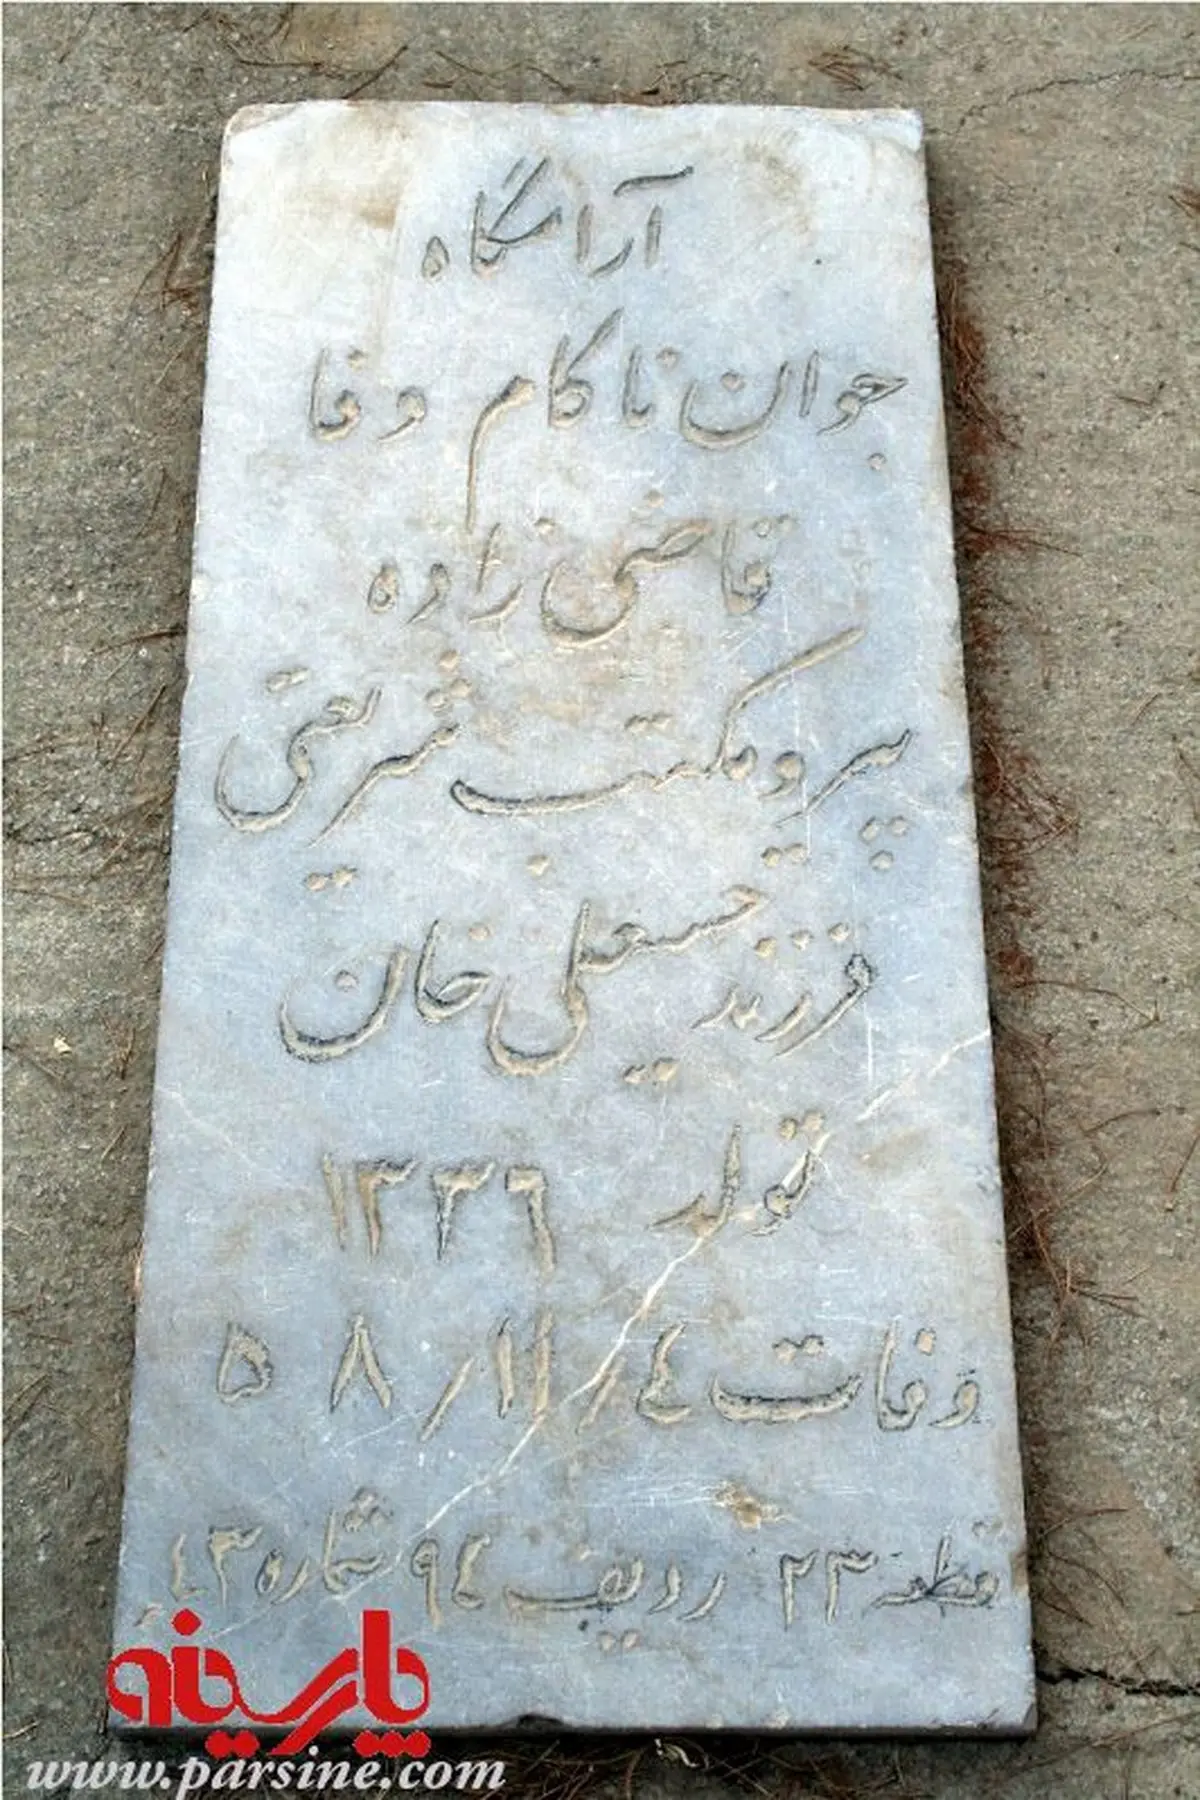 آرامگاه
جوان ناکام وفا
قاضی زاده
پیرو مکتب شریعتی
فرزند حسینعلی خان
تولد ۱۳۳۶
وفات ٤/۱۱/۵۸
قطعه ۲۳ ردیف ۹٤ شماره ٤۳
پارسینه
www.parsine.com